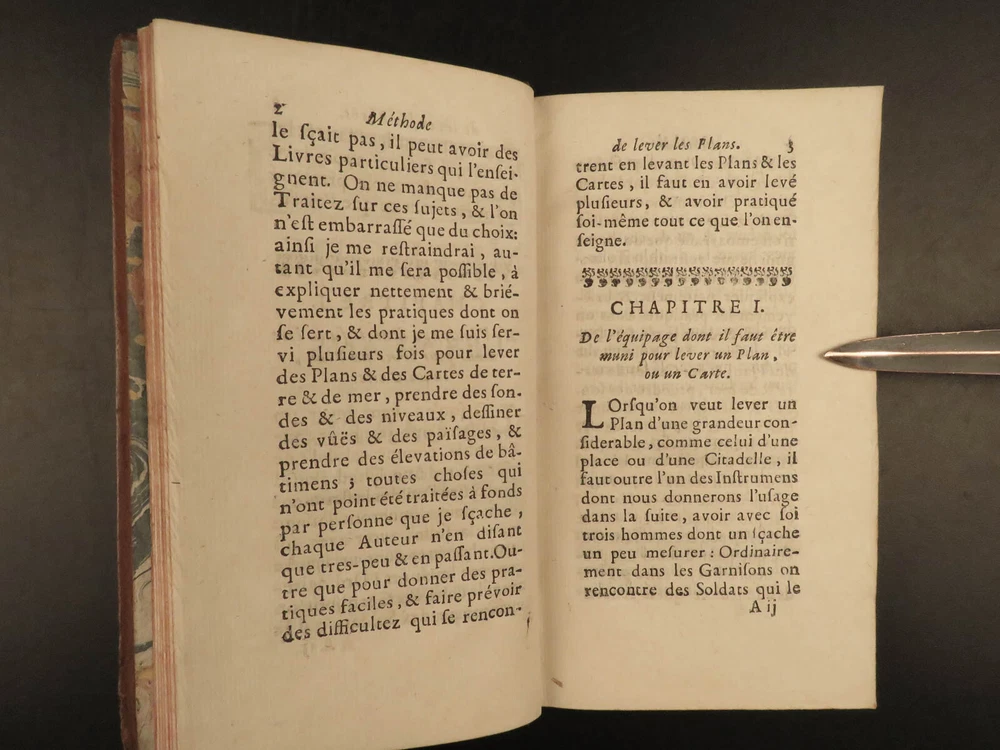 2
Méthode
le sçait pas, il peut avoir des
Livres particuliers qui l'ensei-
gnent. On ne manque pas de
Traitez sur ces sujets, & l'on
n'est embarrassé que du choix:
ainsi je me restraindrai, au-
tant qu'il me sera possible, à
expliquer nettement & brié-
vement les pratiques dont on
se sert, & dont je me suis ser-
vi plusieurs fois pour lever
des Plans & des Cartes de ter-
re & de mer, prendre des son-
des & des niveaux, dessiner
des vûës & des païsages, &
prendre des élevations de bâ-
timens; toutes choses qui
n'ont point été traitées à fonds
par personne que je sçache,
chaque Auteur n'en disant
que tres-peu & en passant. Ou-
tre que pour donner des pra-
tiques faciles, & faire prévoir
des difficultez qui se rencon-
de lever les Plans. 3
trent en levant les Plans & les
Cartes, il faut en avoir levé
plusieurs, & avoir pratiqué
soi-même tout ce que l'on en-
seigne.
CHAPITRE I.
De l'équipage dont il faut être
muni pour lever un Plan,
ou un Carte.
LOrsqu'on veut lever un
Plan d'une grandeur con-
siderable, comme celui d'une
place ou d'une Citadelle, il
faut outre l'un des Instrumens
dont nous donnerons l'usage
dans la suite, avoir avec soi
trois hommes dont un sçache
un peu mesurer: Ordinaire-
ment dans les Garnisons on
rencontre des Soldats qui le
A ij